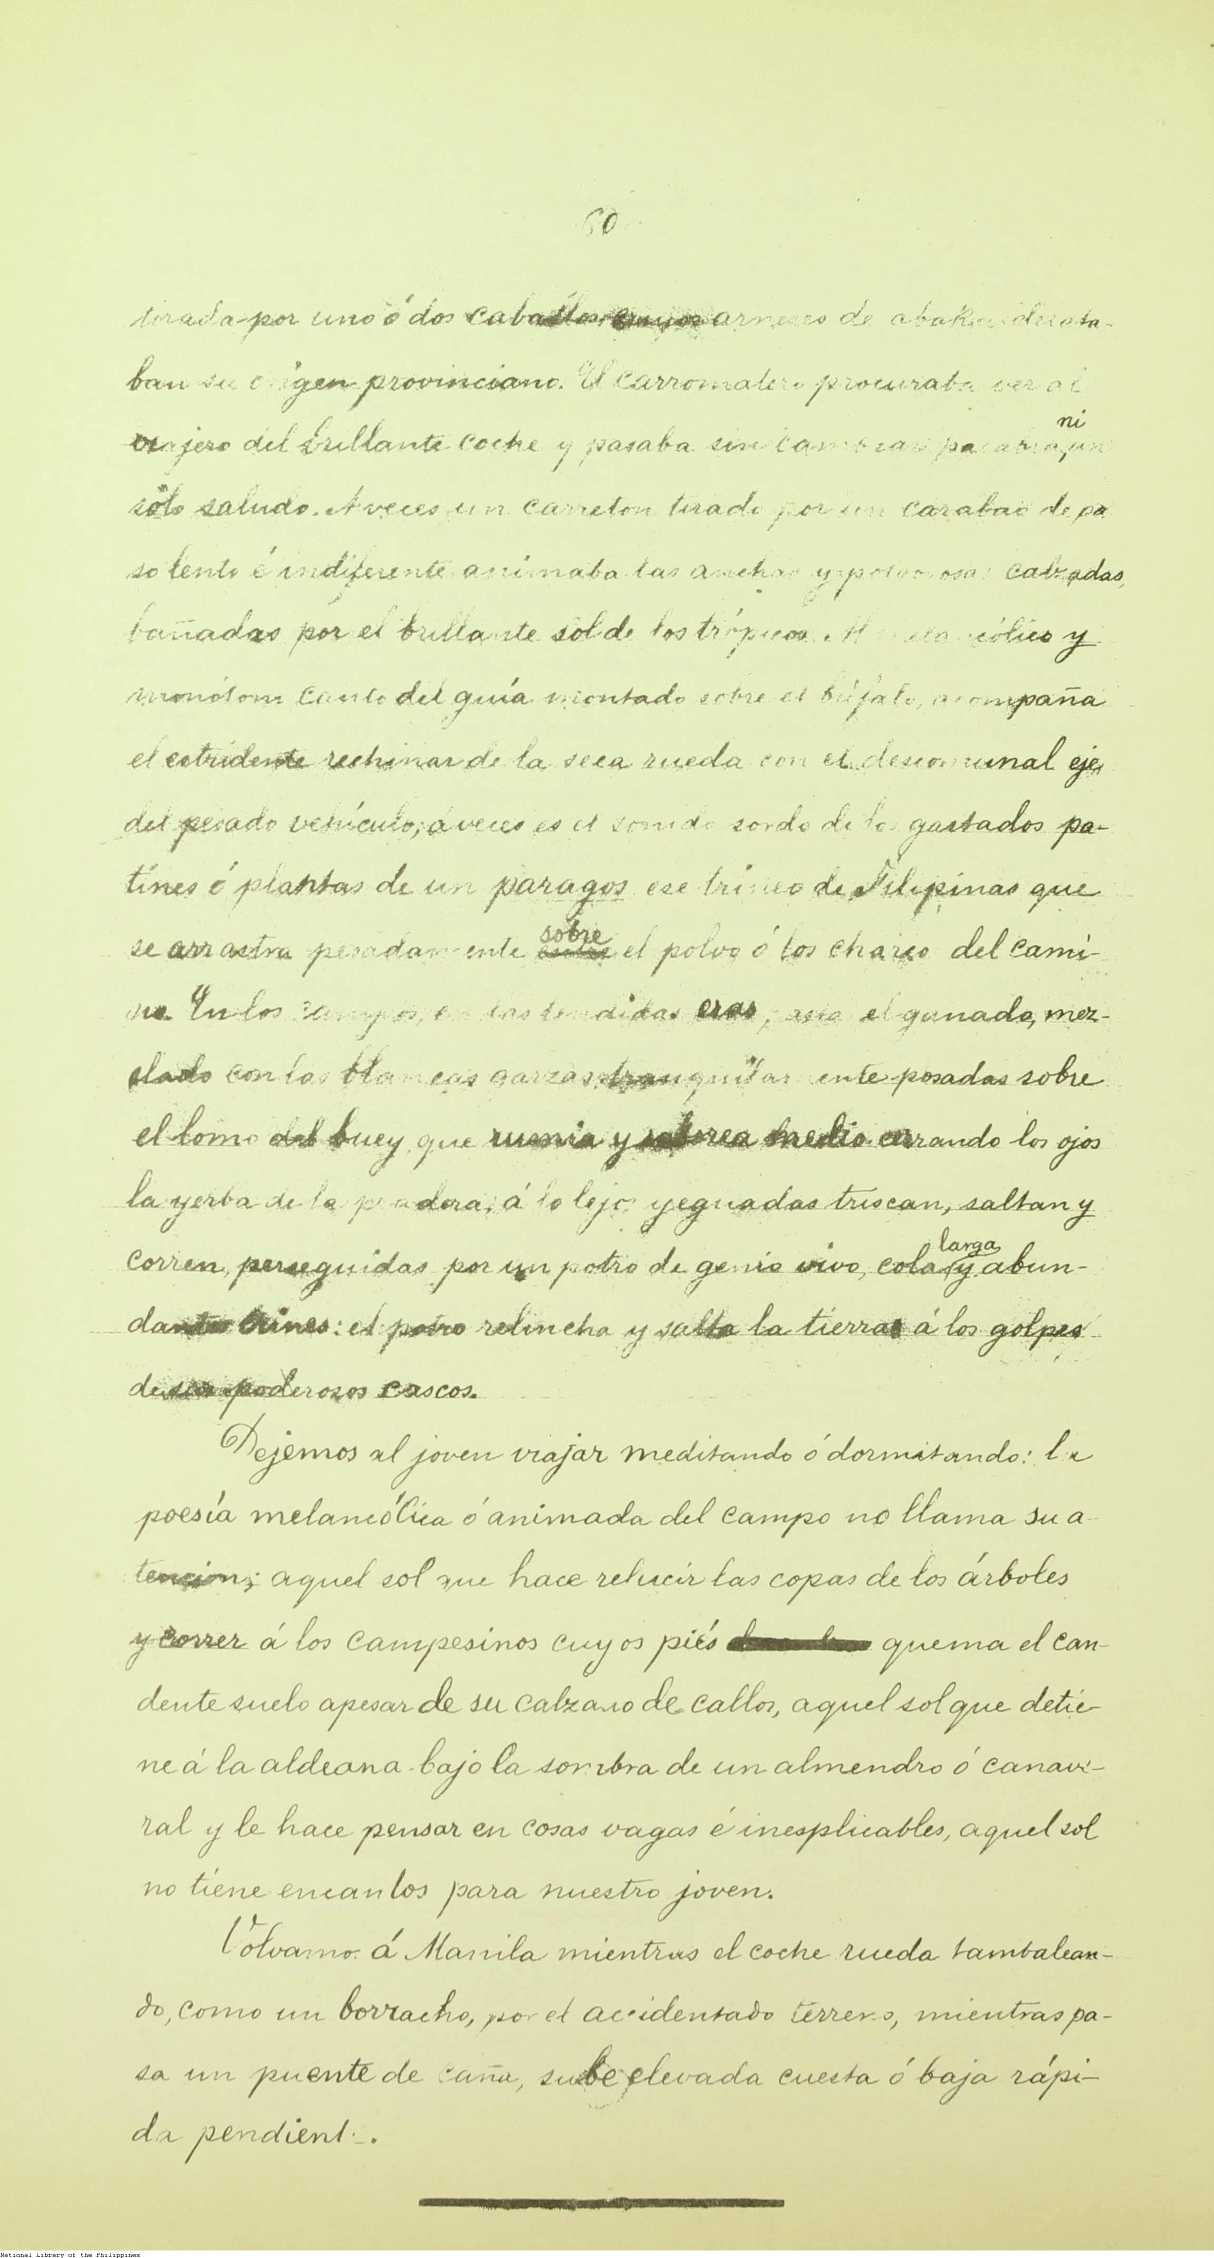 60
tirada por uno ó dos caballos, cuyos arneses de abaká delata-
ban su origen provinciano. El carromatero procuraba ver al
viajero del brillante coche y pasaba sin cambiar palabra, ni un
sólo saludo. A veces un carreton tirado por un carabao de pa
so lento é indiferente animaba las anchas y polvorosas calzadas,
bañadas por el brillante sol de los trópicos. Al melancólico y
monótono canto del guía montado sobre el búfalo, acompaña
el estridente rechinar de la seca rueda con el descomunal eje
del pesado vehículo; á veces es el sonido sordo de los gastados pa-
tínes ó plantas de un paragos ese trineo de Filipinas que
se arrastra pesadamente sobre el polvo ó los charco del cami-
no. En los campos, en las tendidas eras, pasta el ganado, mez-
clado con las blancas garzas tranquilamente posadas sobre
el lomo del buey que rumia y saborea medio cerrando los ojos
la yerba de la pradera; á lo lejos yeguadas triscan, saltan y
corren, perseguidas por un potro de genio vivo, cola larga y abun-
dantes crines: el potro relincha y salta la tierra á los golpes
de sus poderosos cascos.
Dejemos al joven viajar meditando ó dormitando: la
poesía melancólica ó animada del campo no llama su a-
tencion; aquel sol que hace relucir las copas de los árboles
y correr á los campesinos cuyos piés quema el can-
dente suelo apesar de su calzado de callos, aquel sol que detie-
ne á la aldeana bajo la sombra de un almendro ó canave-
ral y le hace pensar en cosas vagas é inesplicables, aquel sol
no tiene encantos para nuestro joven.
Volvamos á Manila mientras el coche rueda tambalean-
do, como un borracho, por el accidentado terreno, mientras pa-
sa un puente de caña, sube elevada cuesta ó baja rápi-
da pendiente.
National Library of the Philippines